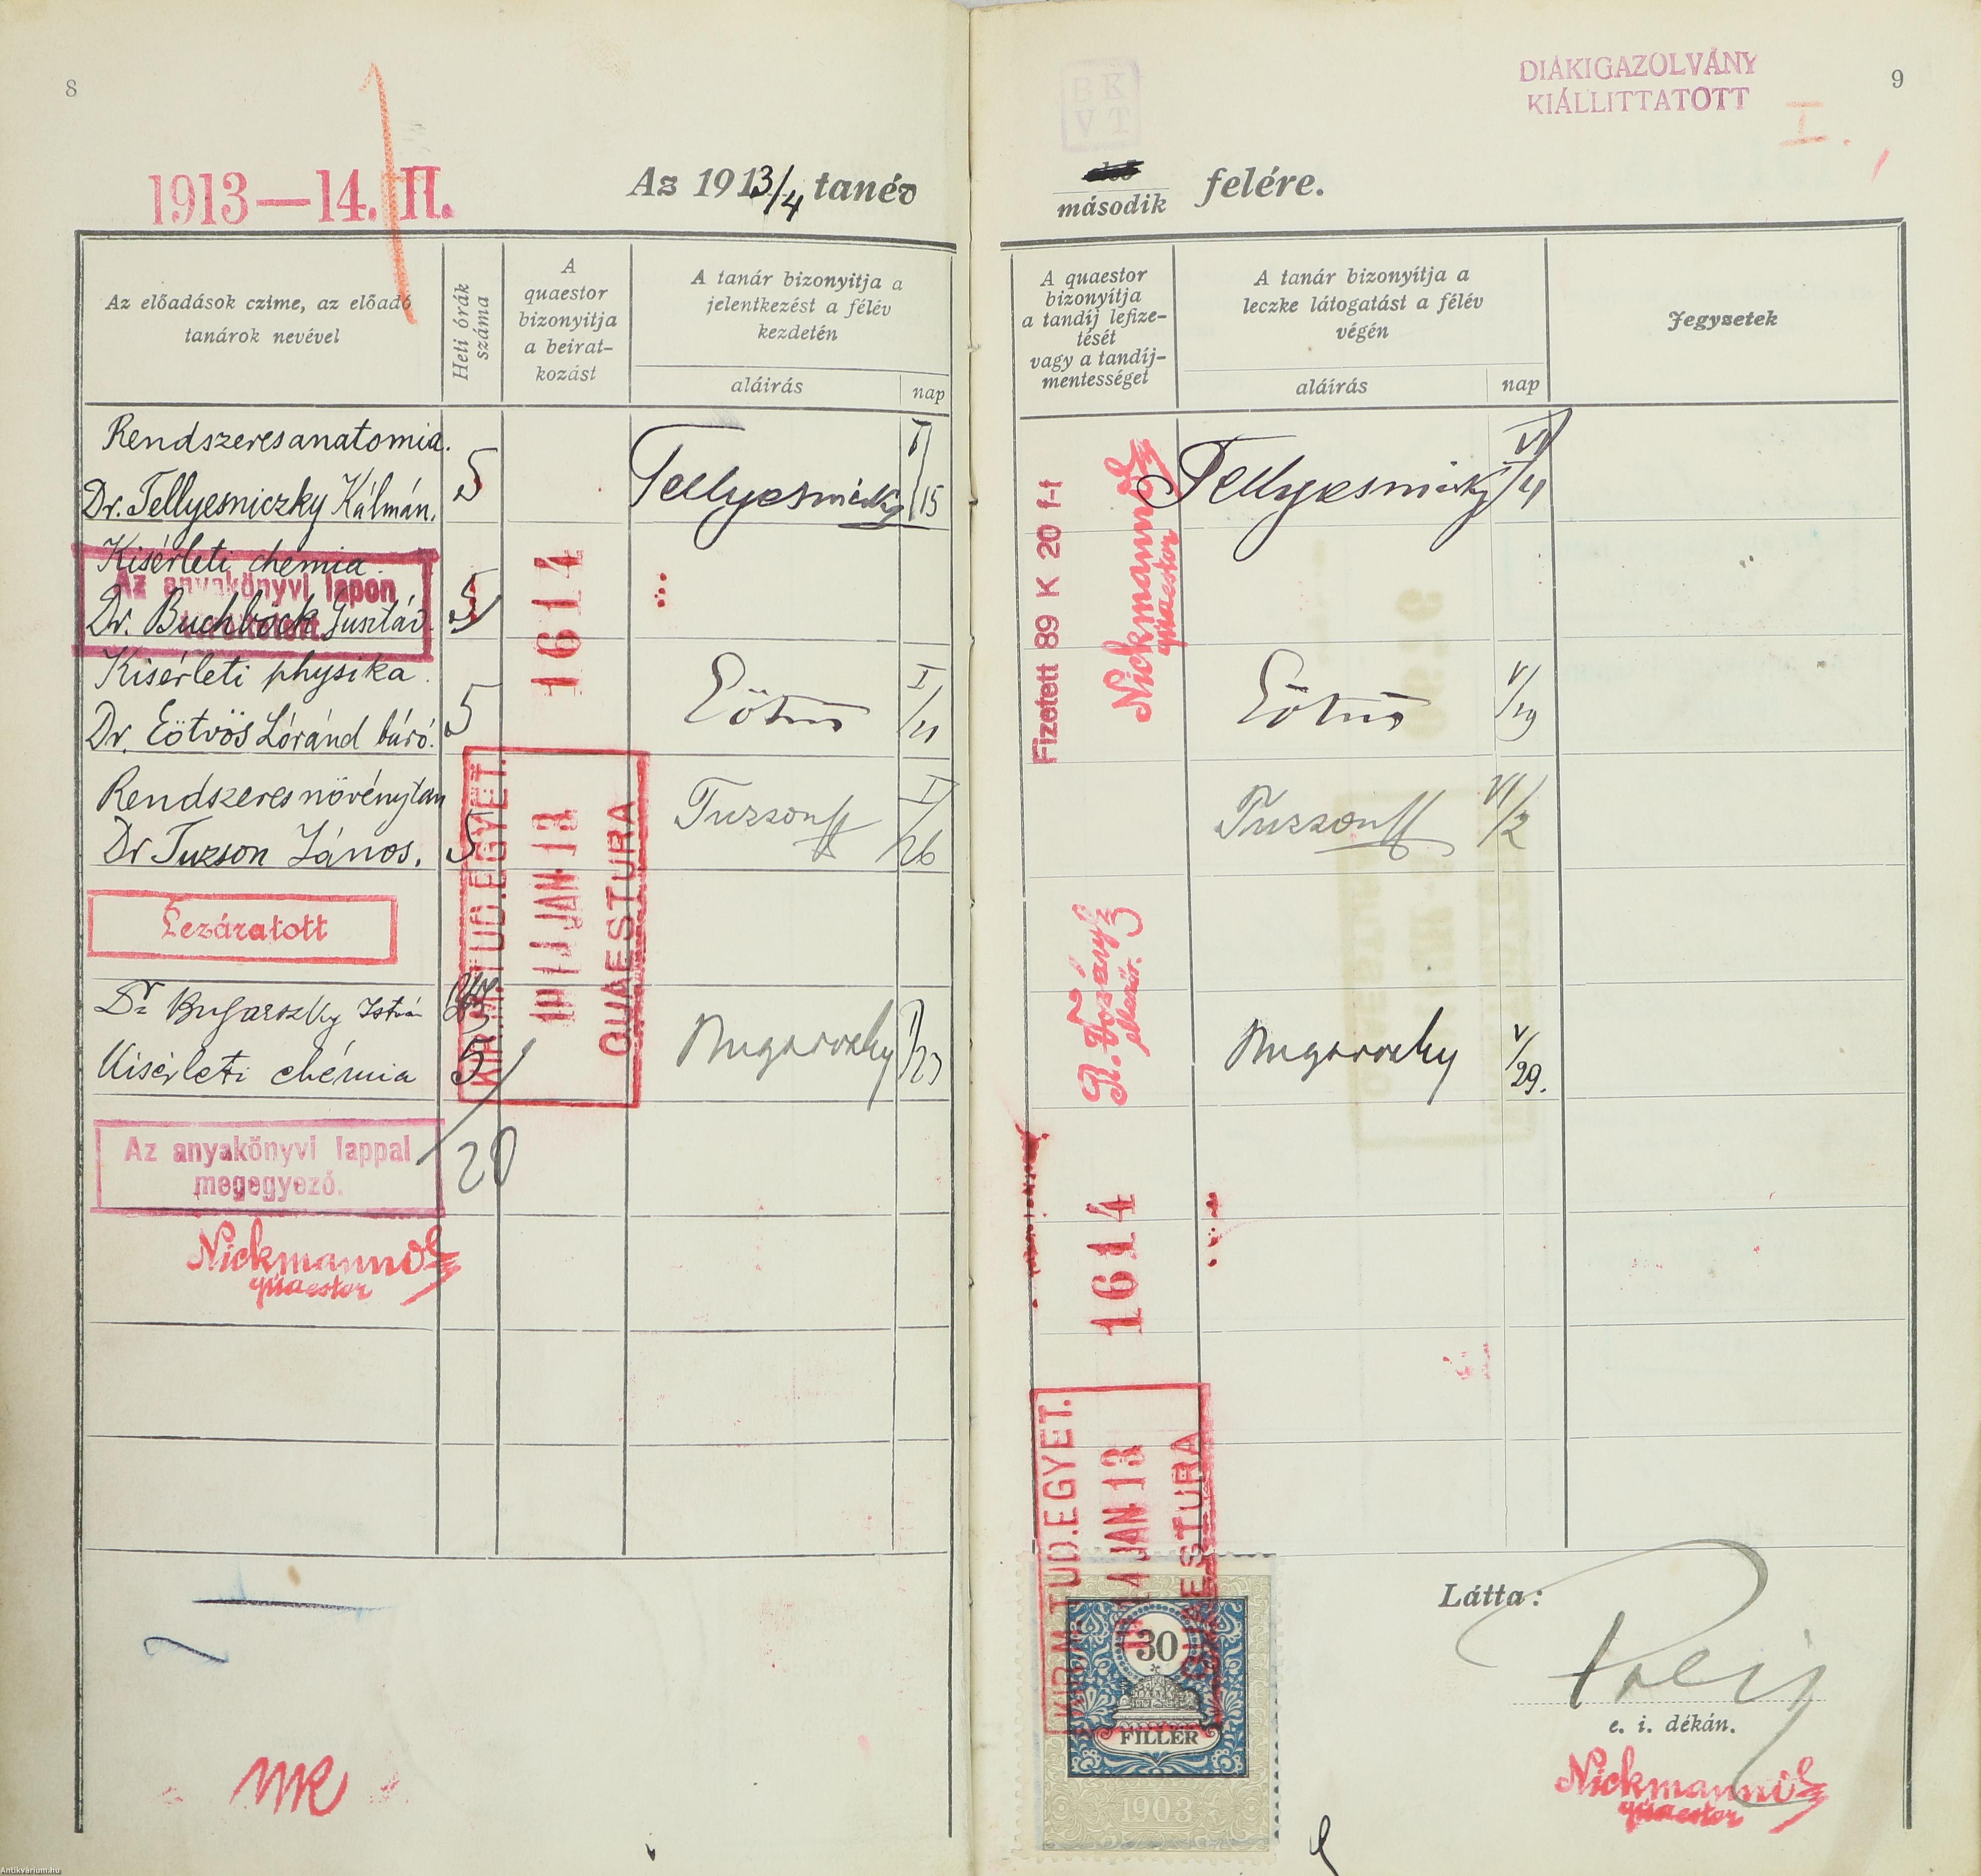 8
1913—14. II.
Az 1913/4 tanév
Az előadások czime, az előadó
tanárok nevével
Heti órák
száma
A
quaestor
bizonyitja
a beirat-
kozást
A tanár bizonyitja a
jelentkezést a félév
kezdetén
aláirás
nap
Rendszeres anatomia.
Dr. Tellyesniczky Kálmán.
5
Tellyesniczky
I/15
Kisérleti chemia.
Az anyakönyvi lapon
Dr. Buchböck Gusztáv
5
1614
Kisérleti physika.
Dr. Eötvös Lóránd báró.
5
Eötvös
I/21
Rendszeres növénytan
Dr Tuzson János.
5
Tuzson
I/26
Lezáratott
KIR. M. TUD. EGYET.
14 JAN 13
QUAESTURA
Dr Bugarszky István
Kisérleti chémia
5
Bugarszky
I/23
20
Az anyakönyvi lappal
megegyező.
Nickmann
quaestor
BK
VT
DIÁKIGAZOLVÁNY
KIÁLLITTATOTT
I.
9
második
felére.
A quaestor
bizonyítja
a tandíj lefize-
tését
vagy a tandíj-
mentességet
A tanár bizonyítja a
leczke látogatást a félév
végén
aláírás
nap
Jegyzetek
Fizetett 89 K 20 f-t
Nickmann
quaestor
Tellyesniczky
VI/4
Eötvös
V/29
Tuzson
VI/2
ellenőr.
Bugarszky
V/29.
1614
KIR. M. TUD. EGYET.
14 JAN 13
QUAESTURA
30
FILLÉR
1903
Látta:
e. i. dékán.
Nickmann
quaestor
Antikvárium.hu